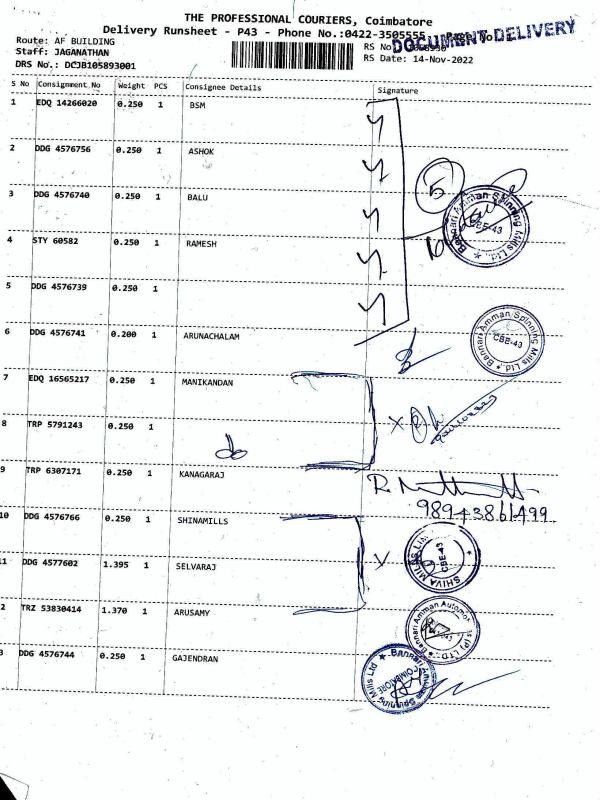 THE PROFESSIONAL COURIERS, Coimbatore
Delivery Runsheet - P43 - Phone No.:0422-3505555 Page No
DOCUMENT DELIVERY
Route: AF BUILDING
Staff: JAGANATHAN
DRS No.: DCJB105893001
RS No
RS Date: 14-Nov-2022
S No Consignment No Weight PCS Consignee Details Signature
1 EDQ 14266020 0.250 1 BSM
2 DDG 4576756 0.250 1 ASHOK
3 DDG 4576740 0.250 1 BALU
4 STY 60582 0.250 1 RAMESH
5 DDG 4576739 0.250 1
6 DDG 4576741 0.200 1 ARUNACHALAM
7 EDQ 16565217 0.250 1 MANIKANDAN
8 TRP 5791243 0.250 1
do
9 TRP 6307171 0.250 1 KANAGARAJ
10 DDG 4576766 0.250 1 SHINAMILLS
11 DDG 4577602 1.395 1 SELVARAJ
2 TRZ 53830414 1.370 1 ARUSAMY
3 DDG 4576744 0.250 1 GAJENDRAN
5
Bannari Amman Spinning Mills Ltd. ★
CBE-43
Bannari Amman Spinning Mills Ltd.
CBE-43
9894386499
SHIVA MILLS LTD.
CBE-43
Bannari Amman Automot
s (P) LTD.
Bannari Amman Spinning Mills Ltd ★
COIMBATORE